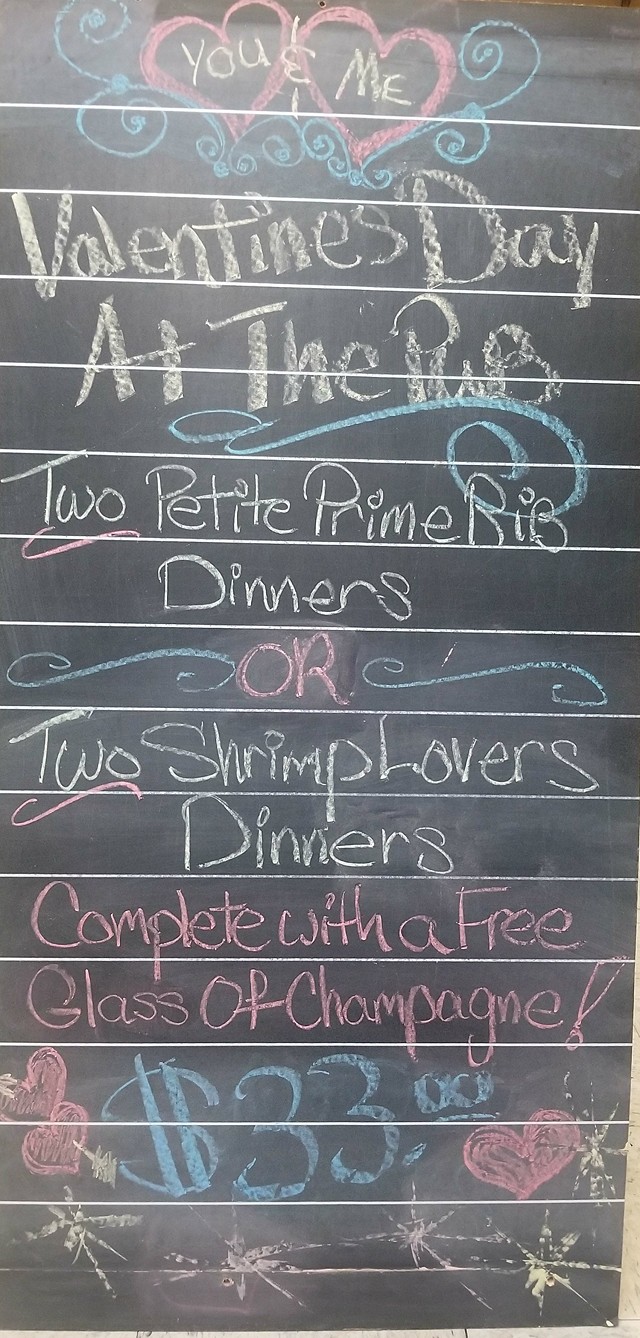 You & Me
Valentines Day
At The Pub
Two Petite Prime Rib
Dinners
OR
Two Shrimp Lovers
Dinners
Complete with a Free
Glass Of Champagne!
$33.00